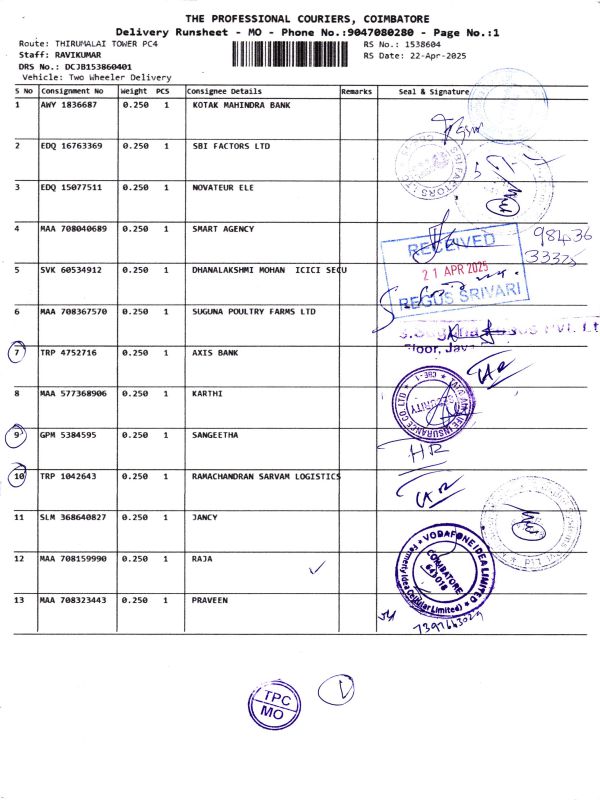 THE PROFESSIONAL COURIERS, COIMBATORE
Delivery Runsheet - MO - Phone No.:9047080280 - Page No.:1
Route: THIRUMALAI TOWER PC4
RS No.: 1538604
Staff: RAVIKUMAR
RS Date: 22-Apr-2025
DRS No.: DCJB153860401
Vehicle: Two Wheeler Delivery
S No Consignment No Weight PCS Consignee Details Remarks Seal & Signature
1 AWY 1836687 0.250 1 KOTAK MAHINDRA BANK
2 EDQ 16763369 0.250 1 SBI FACTORS LTD
3 EDQ 15077511 0.250 1 NOVATEUR ELE
4 MAA 708040689 0.250 1 SMART AGENCY
RECEIVED
21 APR 2025
REGUS SRIVARI
98436
33325
5 SVK 60534912 0.250 1 DHANALAKSHMI MOHAN ICICI SECU
6 MAA 708367570 0.250 1 SUGUNA POULTRY FARMS LTD
7 TRP 4752716 0.250 1 AXIS BANK
8 MAA 577368906 0.250 1 KARTHI
9 GPM 5384595 0.250 1 SANGEETHA
HR
10 TRP 1042643 0.250 1 RAMACHANDRAN SARVAM LOGISTICS
11 SLM 368640827 0.250 1 JANCY
12 MAA 708159990 0.250 1 RAJA
VODAFONE IDEA LIMITED
COIMBATORE
641018
(Formerly Idea Cellular Limited)
13 MAA 708323443 0.250 1 PRAVEEN
TPC
MO